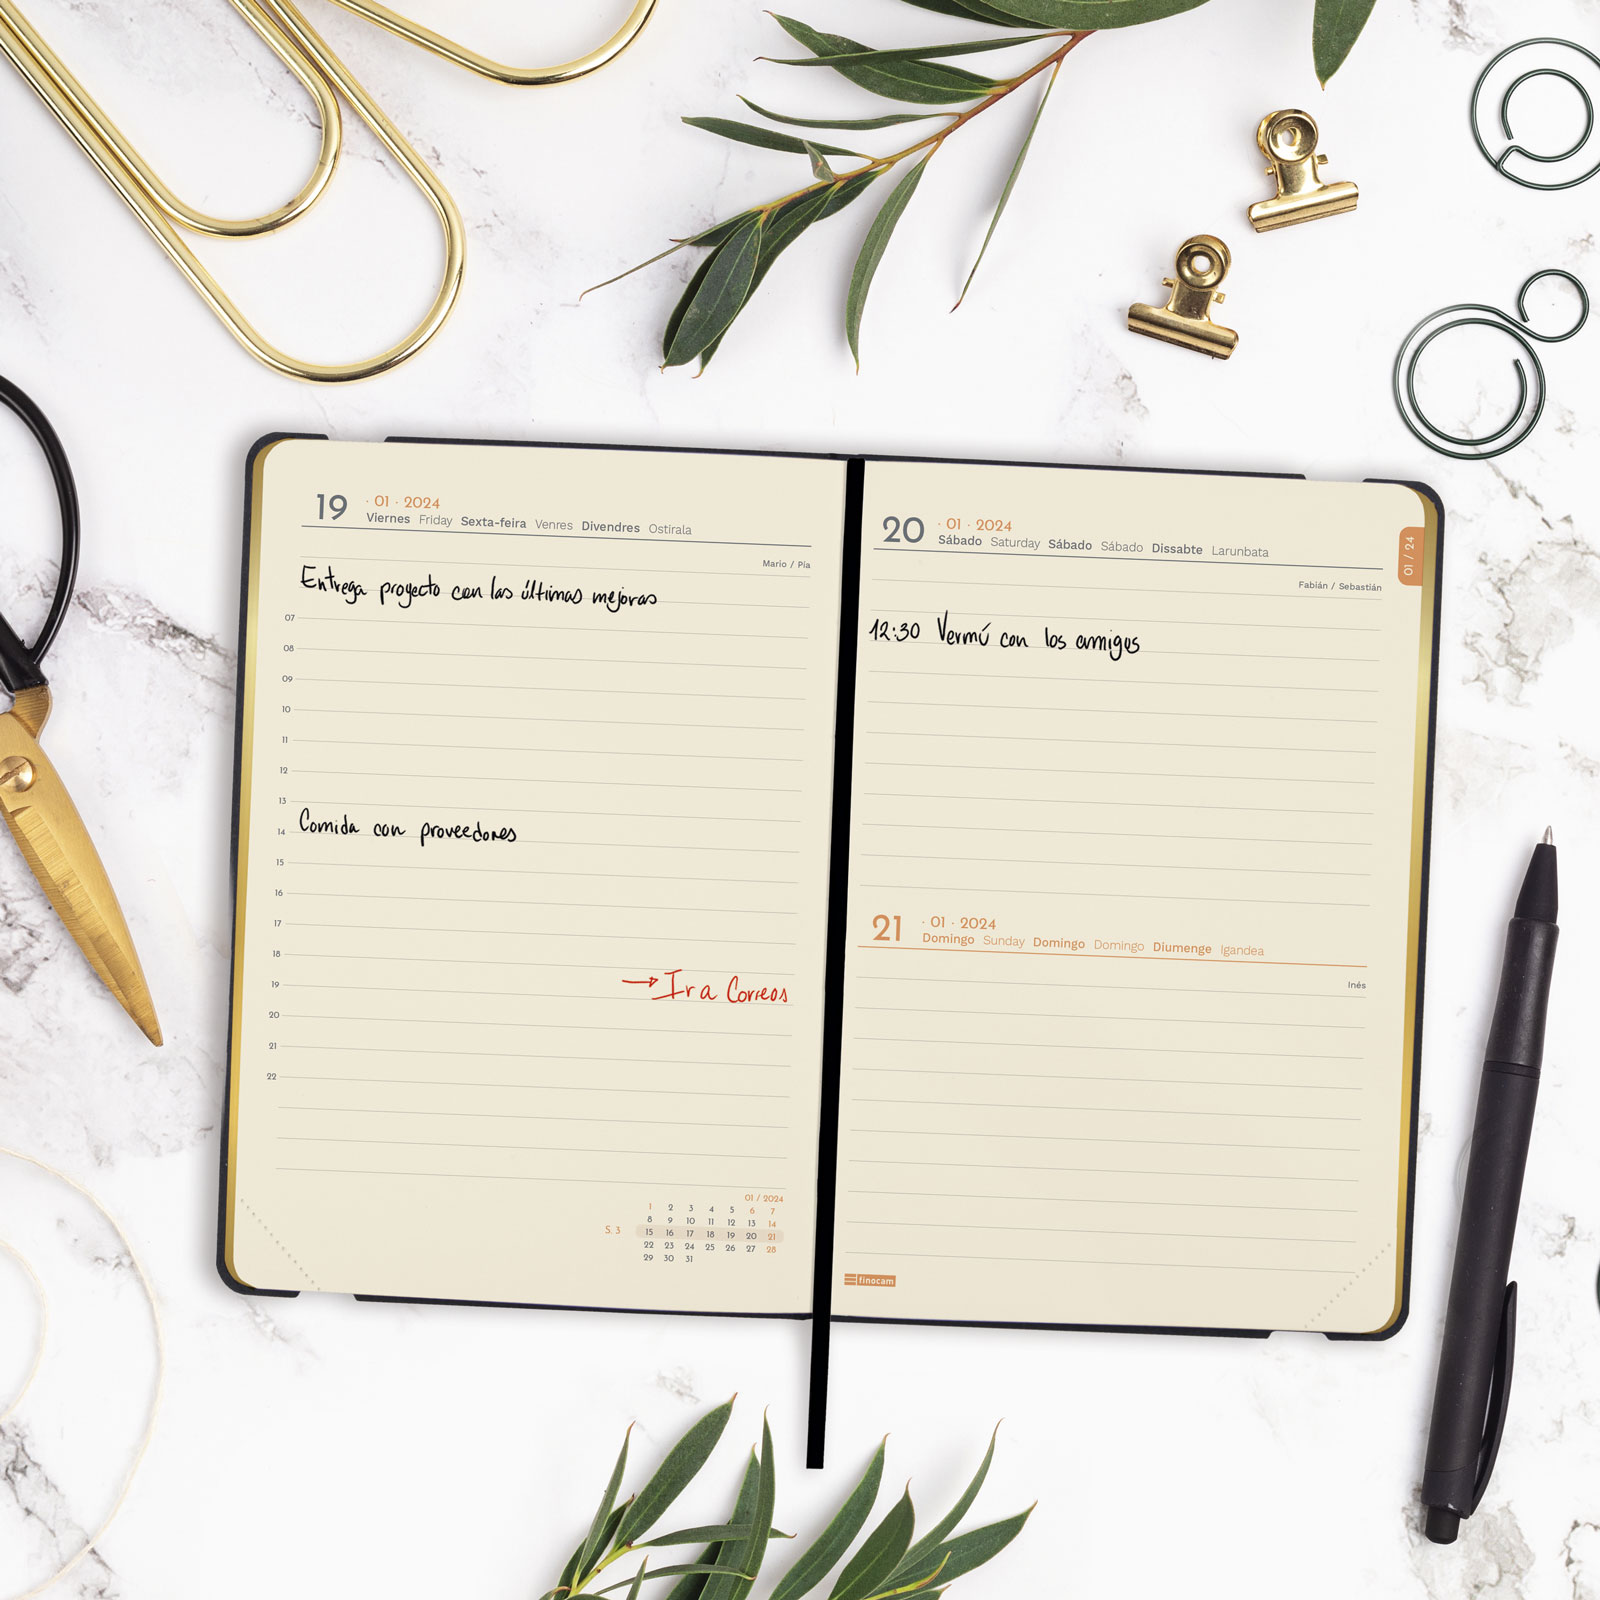 19 · 01 · 2024
Viernes Friday Sexta-feira Venres Divendres Ostirala
Mario / Pía
Entrega proyecto con las últimas mejoras
07
08
09
10
11
12
13
Comida con proveedores
14
15
16
17
18
19 → Ir a Correos
20
21
22
01 / 2024
1 2 3 4 5 6 7
8 9 10 11 12 13 14
S. 3 15 16 17 18 19 20 21
22 23 24 25 26 27 28
29 30 31
20 · 01 · 2024
Sábado Saturday Sábado Sábado Dissabte Larunbata
01 / 24
Fabián / Sebastián
12:30 Vermú con los amigos
21 · 01 · 2024
Domingo Sunday Domingo Domingo Diumenge Igandea
Inés
finocam